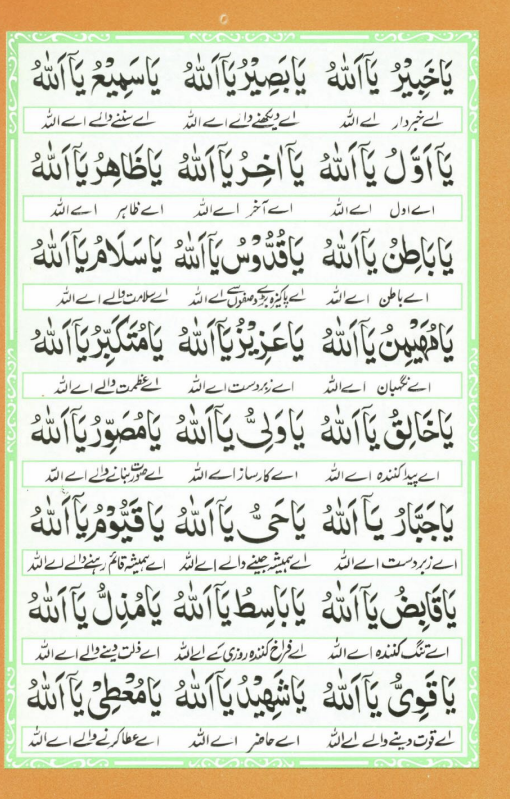 يَاخَبِيْرُ يَآاَللّٰهُ يَابَصِيْرُ يَآاَللّٰهُ يَاسَمِيْعُ يَآاَللّٰهُ
اے خبردار اے اللہ اے دیکھنے والے اے اللہ اے سننے والے اے اللہ
يَآاَوَّلُ يَآاَللّٰهُ يَآاٰخِرُ يَآاَللّٰهُ يَاظَاهِرُ يَآاَللّٰهُ
اے اول اے اللہ اے آخر اے اللہ اے ظاہر اے اللہ
يَابَاطِنُ يَآاَللّٰهُ يَاقُدُّوْسُ يَآاَللّٰهُ يَاسَلَامُ يَآاَللّٰهُ
اے باطن اے اللہ اے پاکیزہ اے اللہ اے سلامت والے اے اللہ
يَامُهَيْمِنُ يَآاَللّٰهُ يَاعَزِيْزُ يَآاَللّٰهُ يَامُتَكَبِّرُ يَآاَللّٰهُ
اے نگہبان اے اللہ اے زبردست اے اللہ اے عظمت والے اے اللہ
يَاخَالِقُ يَآاَللّٰهُ يَاوَلِيُّ يَآاَللّٰهُ يَامُصَوِّرُ يَآاَللّٰهُ
اے پیدا کنندہ اے اللہ اے کارساز اے اللہ اے صورت بنانے والے اے اللہ
يَاجَبَّارُ يَآاَللّٰهُ يَاحَىُّ يَآاَللّٰهُ يَاقَيُّوْمُ يَآاَللّٰهُ
اے زبردست اے اللہ اے ہمیشہ جینے والے اے اللہ اے ہمیشہ قائم رہنے والے اے اللہ
يَاقَابِضُ يَآاَللّٰهُ يَابَاسِطُ يَآاَللّٰهُ يَامُذِلُّ يَآاَللّٰهُ
اے تنگ کنندہ اے اللہ اے فراخ کنندہ روزی کے اے اللہ اے ذلت دینے والے اے اللہ
يَاقَوِىُّ يَآاَللّٰهُ يَاشَهِيْدُ يَآاَللّٰهُ يَامُعْطِىْ يَآاَللّٰهُ
اے قوت دینے والے اے اللہ اے حاضر اے اللہ اے عطا کرنے والے اے اللہ